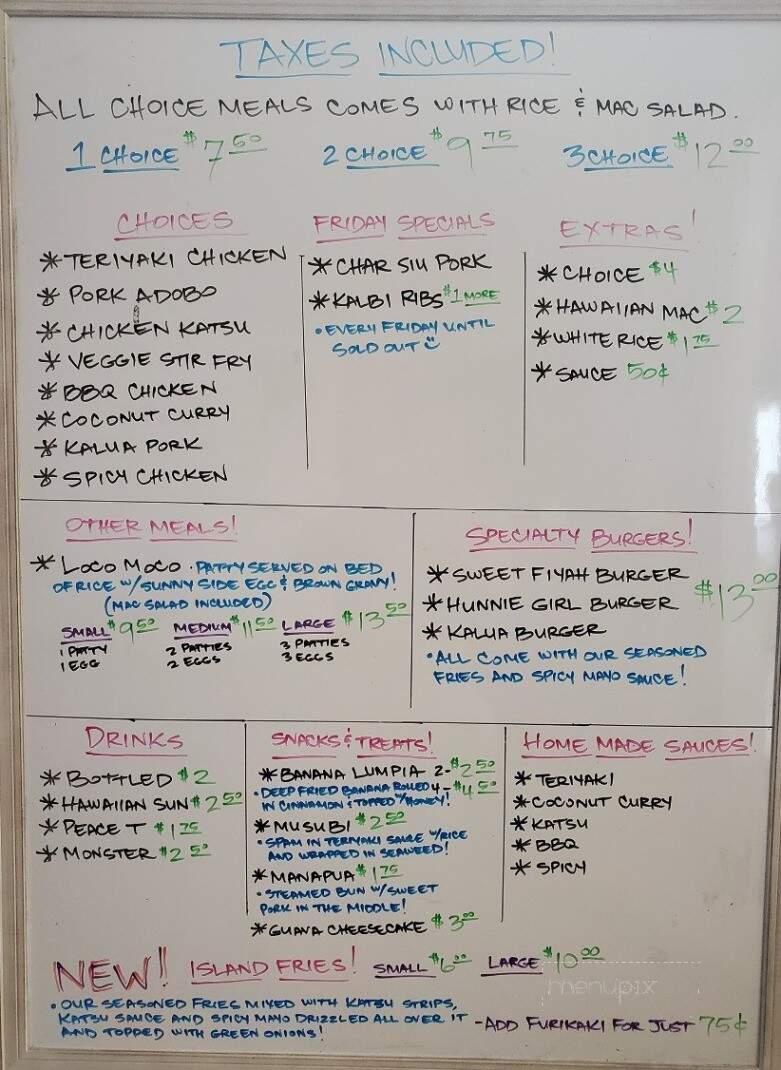 TAXES INCLUDED!
ALL CHOICE MEALS COMES WITH RICE & MAC SALAD.
1 CHOICE $7 50 2 CHOICE $9 75 3 CHOICE $12 00
CHOICES
* TERIYAKI CHICKEN
* PORK ADOBO
* CHICKEN KATSU
* VEGGIE STIR FRY
* BBQ CHICKEN
* COCONUT CURRY
* KALUA PORK
* SPICY CHICKEN
FRIDAY SPECIALS
* CHAR SIU PORK
* KALBI RIBS $1 MORE
• EVERY FRIDAY UNTIL
SOLD OUT
EXTRAS!
* CHOICE $4
* HAWAIIAN MAC $2
* WHITE RICE $1 75
* SAUCE 50¢
OTHER MEALS!
* LOCO MOCO • PATTY SERVED ON BED
OF RICE W/ SUNNY SIDE EGG & BROWN GRAVY!
(MAC SALAD INCLUDED)
SMALL $9 50 MEDIUM $11 50 LARGE $13 50
1 PATTY 2 PATTIES 3 PATTIES
1 EGG 2 EGGS 3 EGGS
SPECIALTY BURGERS!
* SWEET FIYAH BURGER
* HUNNIE GIRL BURGER $13 00
* KALUA BURGER
• ALL COME WITH OUR SEASONED
FRIES AND SPICY MAYO SAUCE!
DRINKS
* BOTTLED $2
* HAWAIIAN SUN $2 50
* PEACE T $1 75
* MONSTER $2 50
SNACKS & TREATS!
* BANANA LUMPIA 2-$2 50
• DEEP FRIED BANANA ROLLED 4-$4 50
IN CINNAMON & TOPPED W/ HONEY!
* MUSUBI $2 50
• SPAM IN TERIYAKI SAUCE W/RICE
AND WRAPPED IN SEAWEED!
* MANAPUA $1 75
• STEAMED BUN W/ SWEET
PORK IN THE MIDDLE!
* GUAVA CHEESECAKE $3 00
HOME MADE SAUCES!
* TERIYAKI
* COCONUT CURRY
* KATSU
* BBQ
* SPICY
NEW!! ISLAND FRIES! SMALL $6 00 LARGE $10 00
menupix
• OUR SEASONED FRIES MIXED WITH KATSU STRIPS,
KATSU SAUCE AND SPICY MAYO DRIZZLED ALL OVER IT
AND TOPPED WITH GREEN ONIONS!
-ADD FURIKAKI FOR JUST 75¢